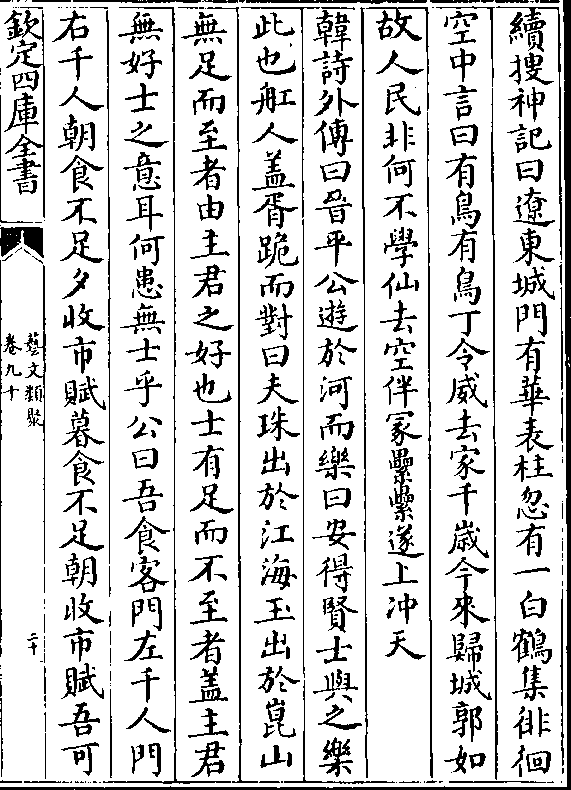 續搜神記曰遼東城門有華表柱忽有一白鶴集徘徊
空中言曰有鳥有鳥丁令威去家千歲今來歸城郭如
故人民非何不學仙去空伴冢纍纍遂上冲天
韓詩外傳曰晉平公遊於河而樂曰安得賢士與之樂
此也舡人蓋胥跪而對曰夫珠出於江海玉出於崑山
無足而至者由主君之好也士有足而不至者蓋主君
無好士之意耳何患無士乎公曰吾食客門左千人門
右千人朝食不足夕收市賦暮食不足朝收市賦吾可
欽定四庫全書
藝文類聚
卷九十
二十